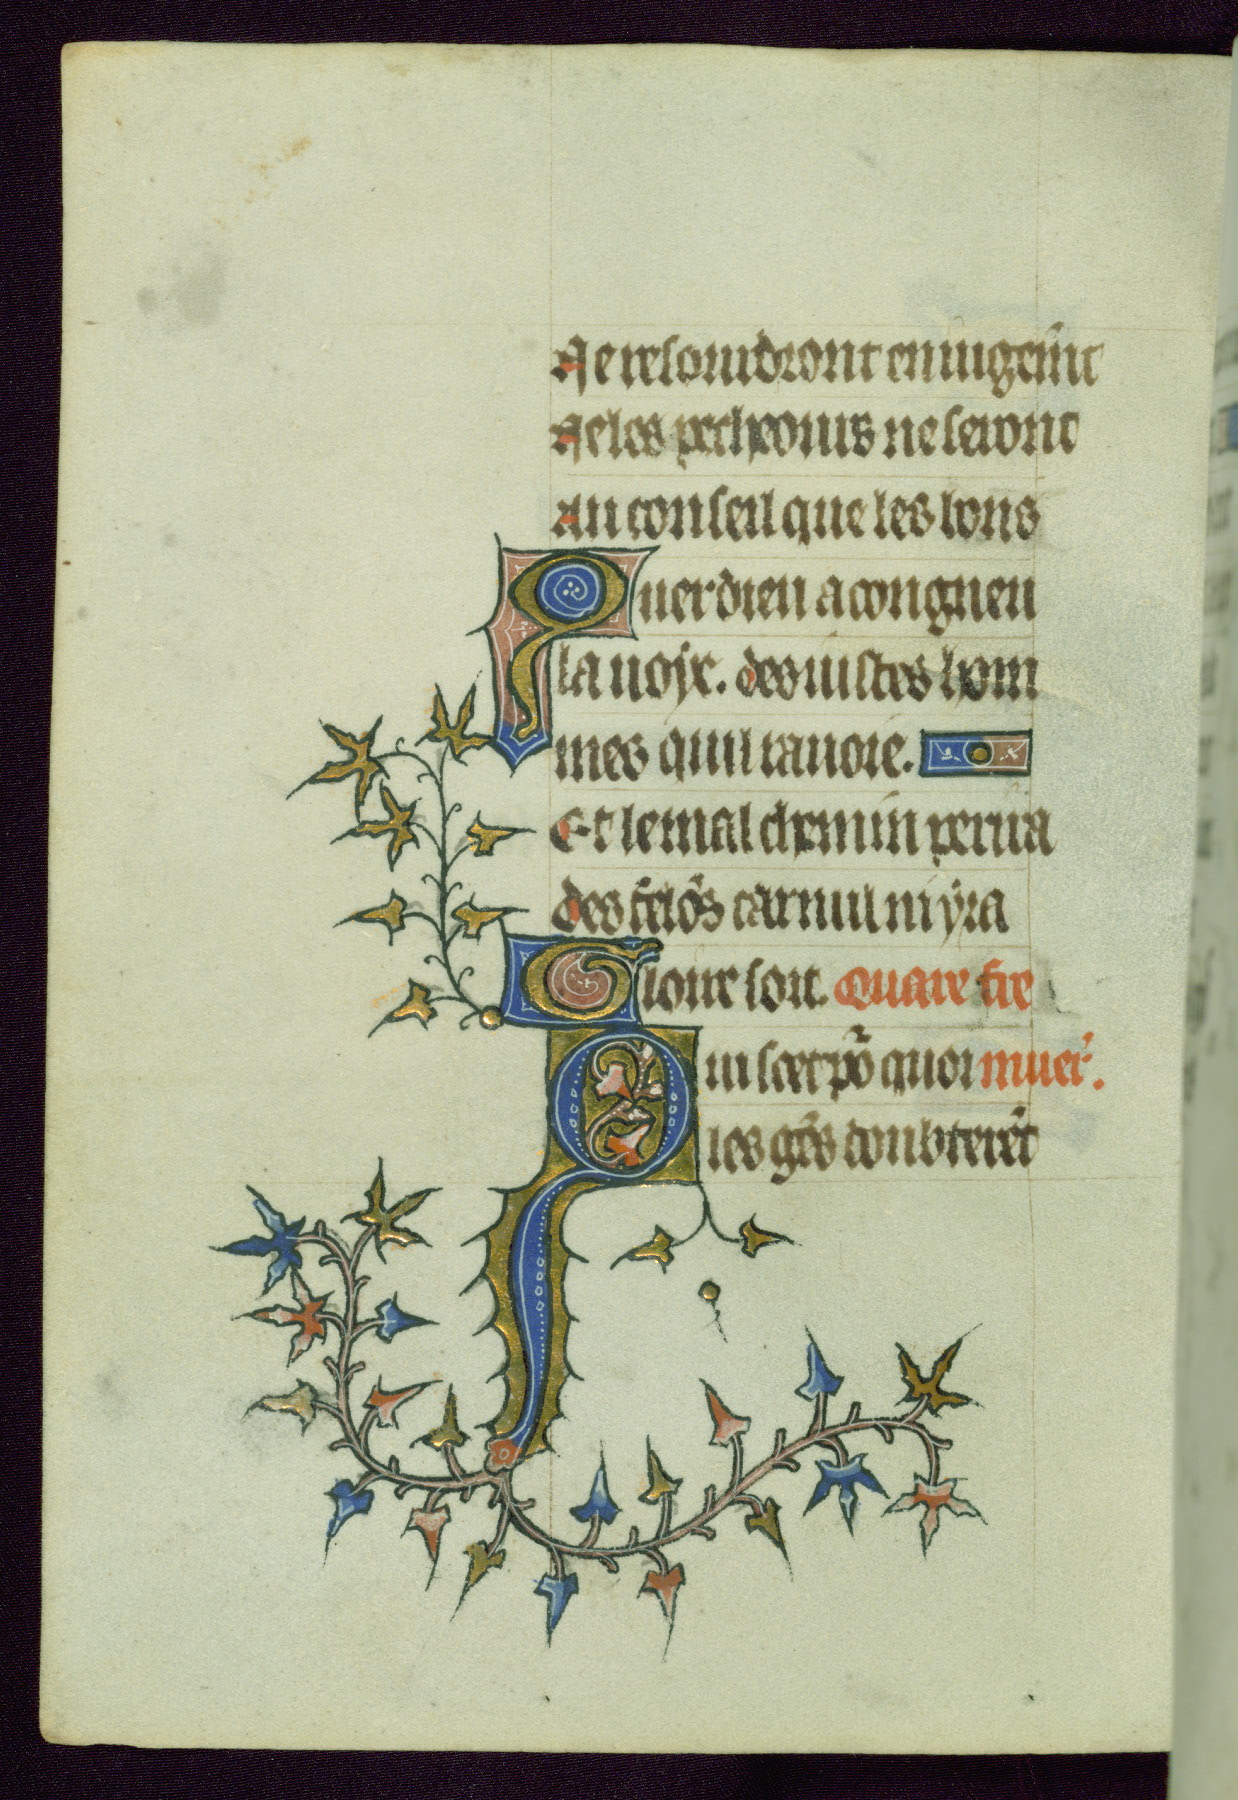 Ne resourdront en iugem̄t
Ne les pecheours ne seront
au conseil que les bons
Quer dieu a congneu
la uoye. des iustes hom
mes quil rauoie.
Et le mal chemin perira
des felōs car nul ni yra
Gloire soit. Quare fre
Qui scet pō quoi muer̄.
les gēs doubterēt